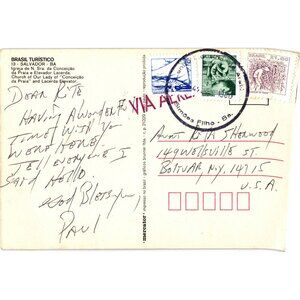 BRASIL TURÍSTICO
13 - SALVADOR - BA
Igreja de N. Sra. da Conceição
da Praia e Elevador Lacerda.
Church of Our Lady of "Conceição
da Praia" and Lacerda Elevator.
DEAR RITA
HAVING A WONDERFUL
TIME! WISH YOU
WERE HERE.
TELL EVERYONE I
SAID HELLO.
God Bless you,
PAUL
mercator
VIA AÉREA
Filho - Ba.
BRASIL
AUNT RITA SHERWOOD
149 WELLSVILLE ST
BOLIVAR, N.Y. 14715
U.S.A.